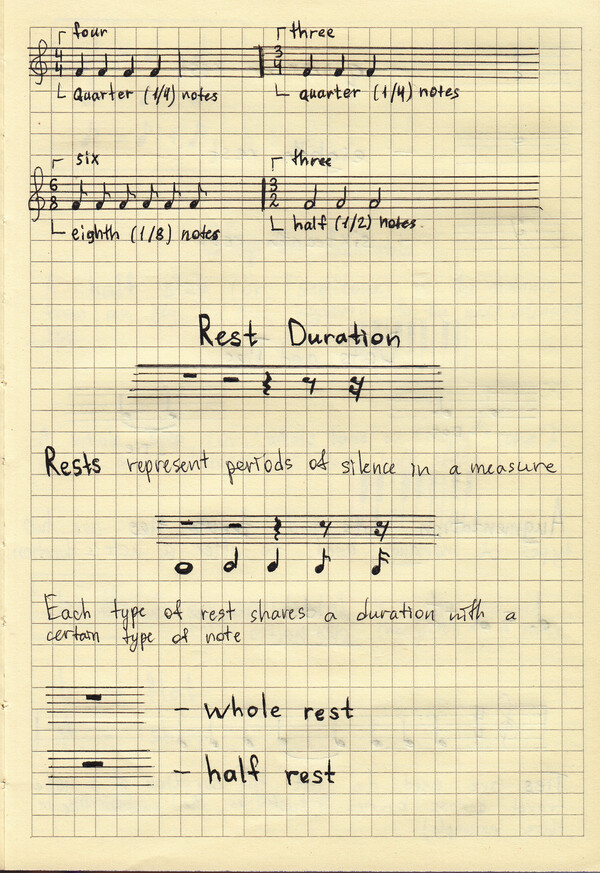 four three
4 4 3 4
quarter (1/4) notes quarter (1/4) notes
six three
6 8 3 2
eighth (1/8) notes half (1/2) notes
Rest Duration
Rests represent periods of silence in a measure
Each type of rest shares a duration with a
certain type of note
– whole rest
– half rest